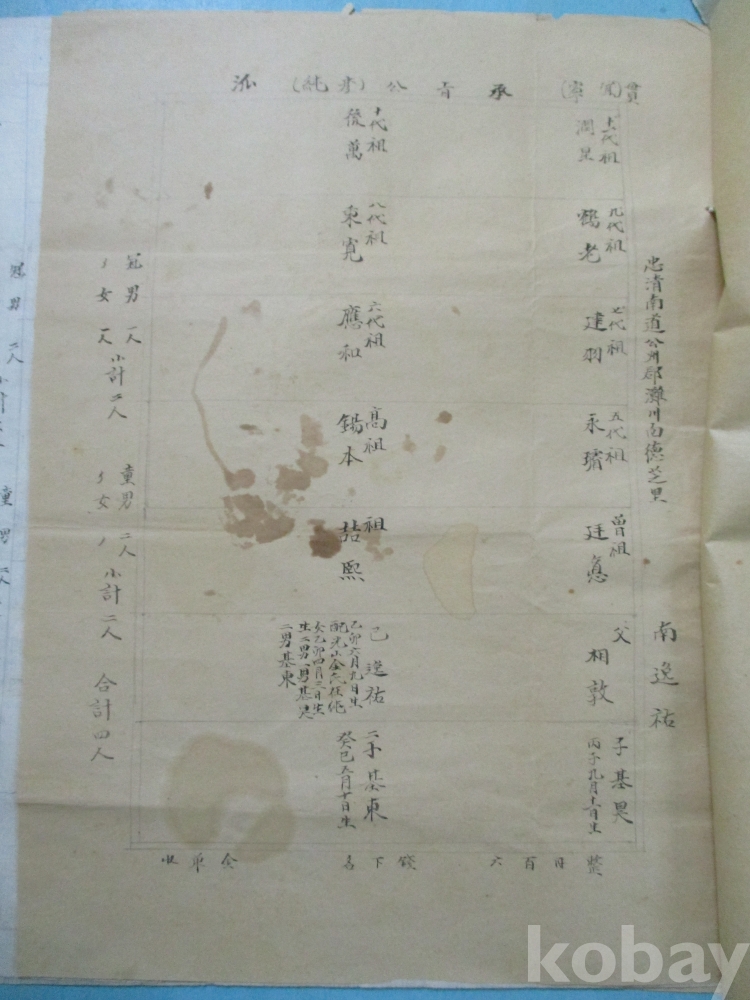 貫(宜寧) 承旨公 派
忠清南道公州郡灘川面德芝里
南逸祐
十一代祖
九代祖
鶴老
七代祖
建羽
五代祖
永
曾祖
廷憙
父
相敦
子基昊
丙子九月十一日生
十代祖
後萬
八代祖
東寬
六代祖
應和
高祖
錫本
祖
喆熙
己 逸祐
乙卯六月九日生
配光山金氏
女乙卯四月二日生
生二男一男基昊
二男基東
二子基東
癸巳五月十日生
冠男 一人
〃女 一人 小計 二人
童男 二人
〃女 〃 小計 二人
合計 四人
整
六百
名下錢
kobay